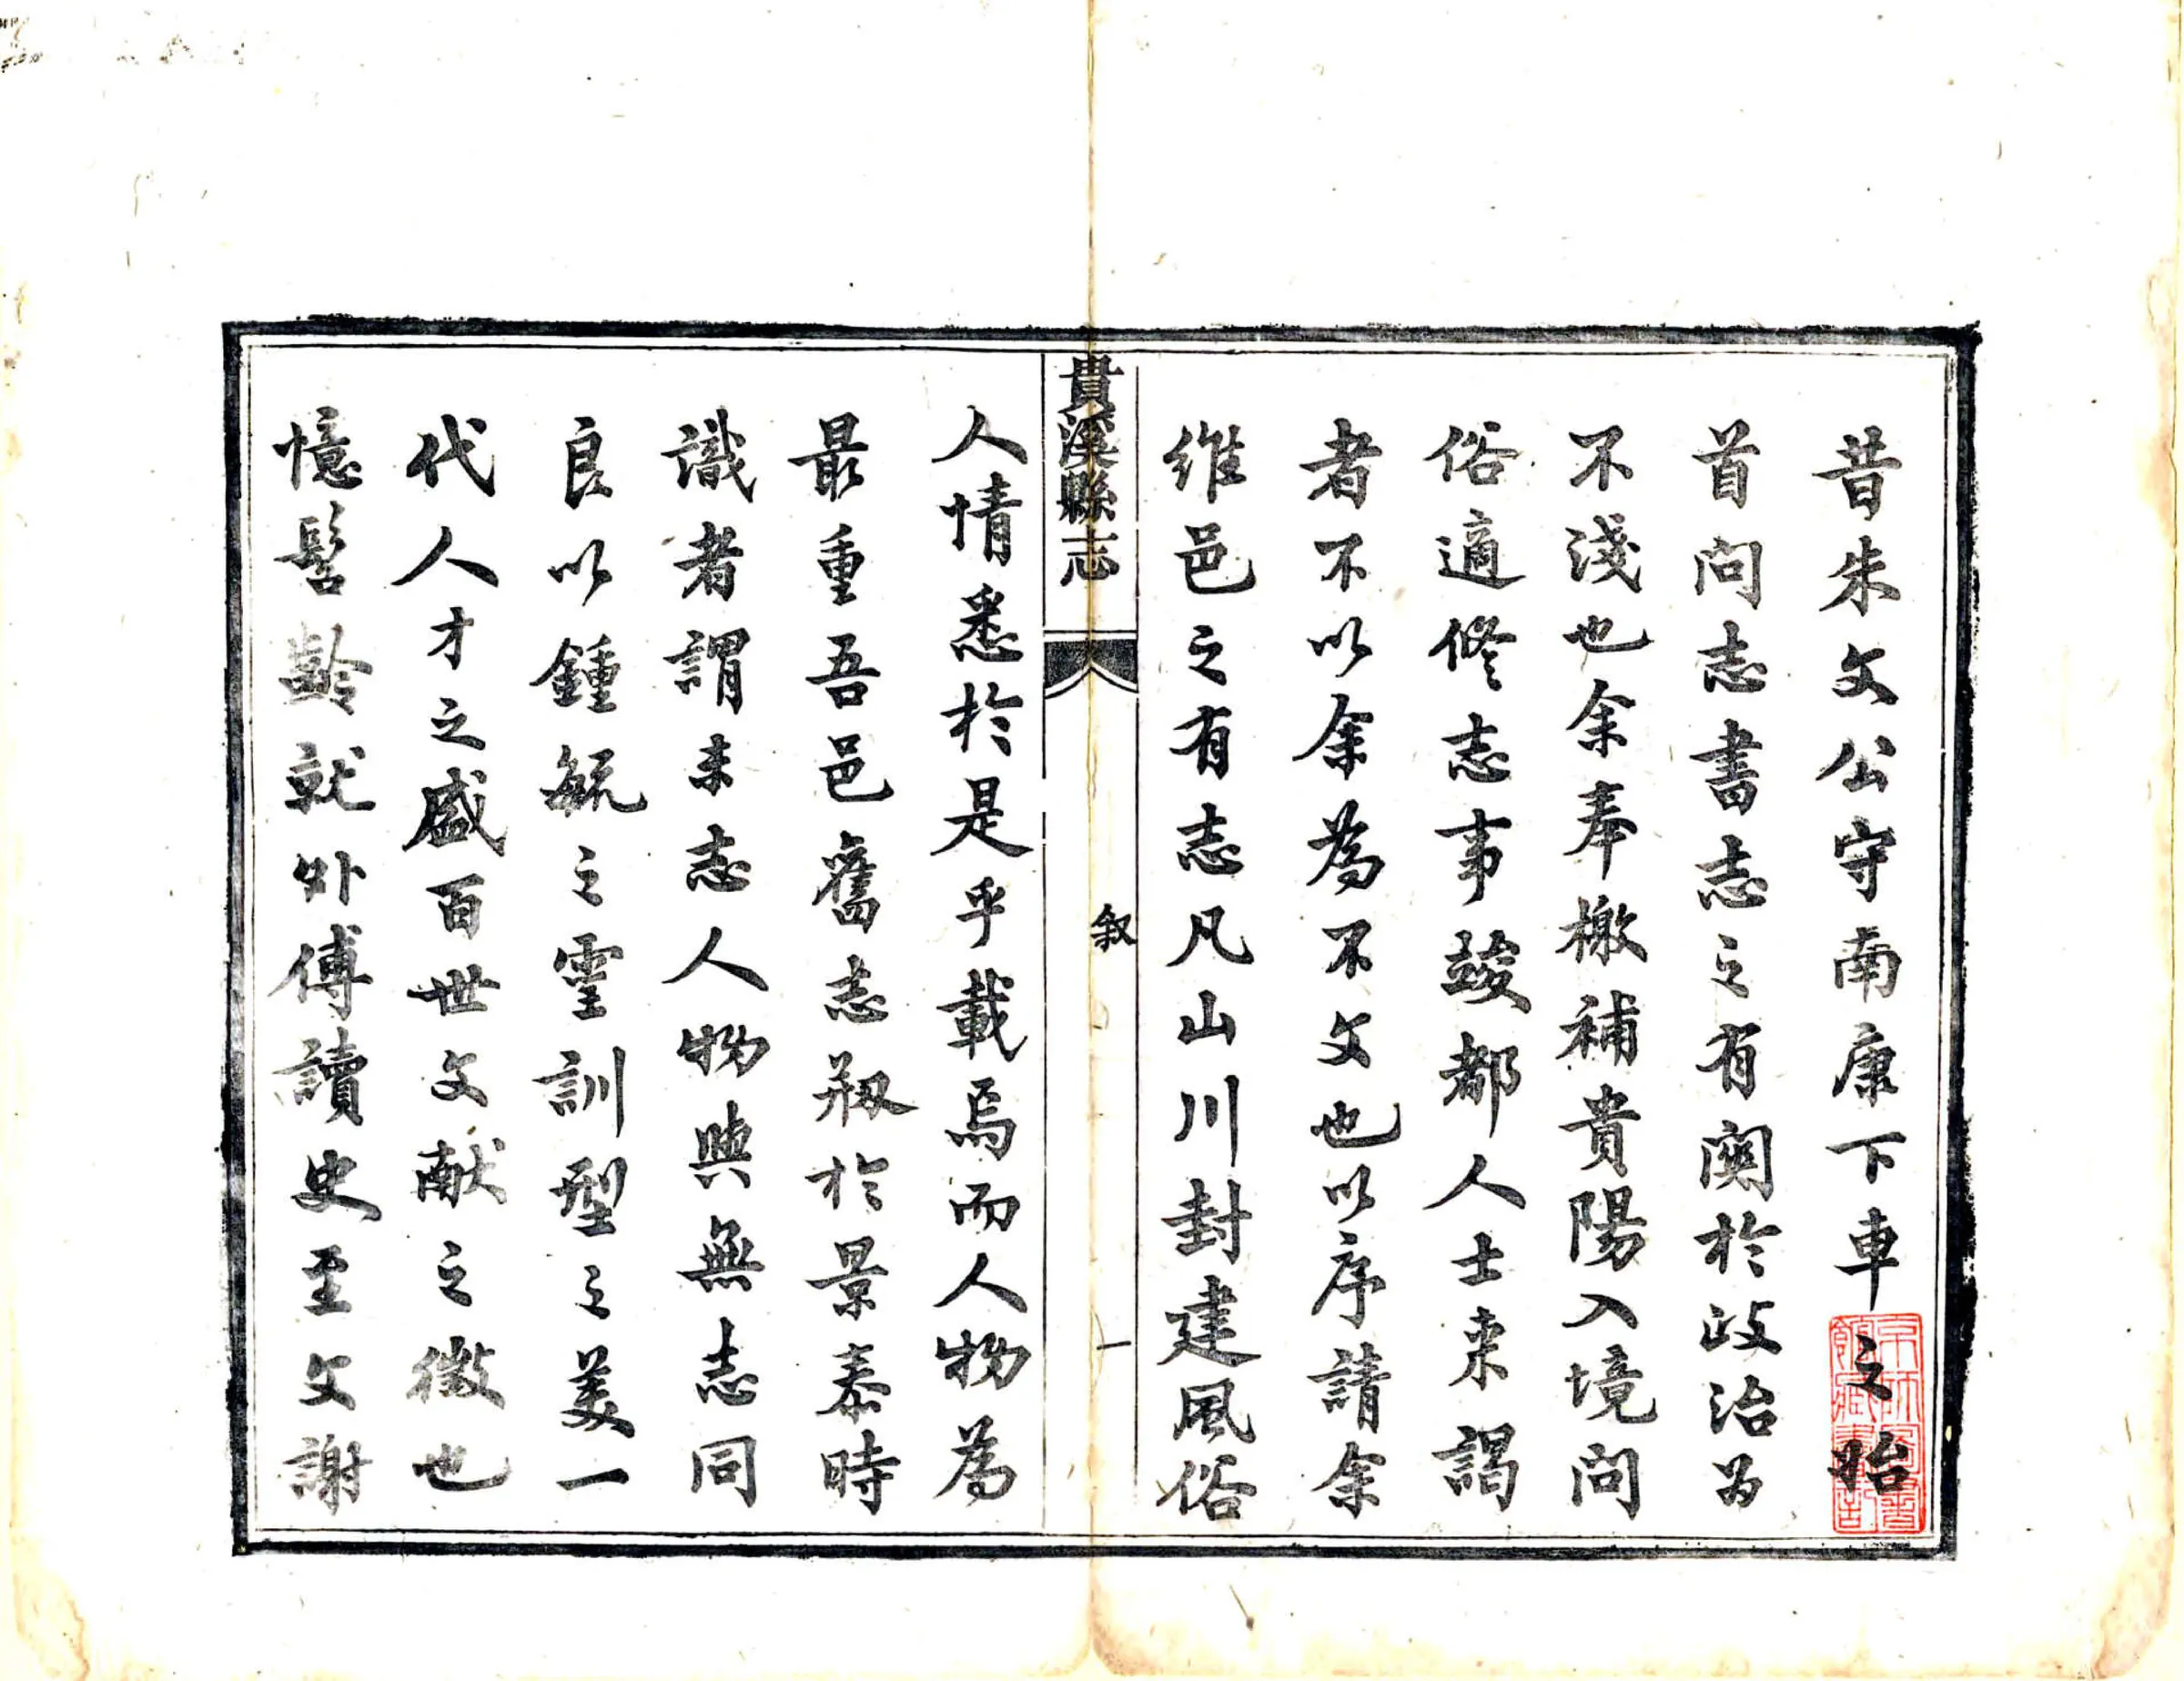 昔朱文公守南康下車之始
首问志書志之有関於政治為
不淺也余奉檄補貴陽入境问
俗適修志事竣都人士来謁
者不以余為不文也以序請余
維邑之有志凡山川封建風俗
貴溪縣志
叙
一
人情悉於是乎載焉而人物為
最重吾邑舊志剏於景泰時
識者謂未志人物與無志同
良以鍾毓之靈訓型之美一
代人才之盛百世文献之徵也
憶髫齡就外傅讀史至文謝